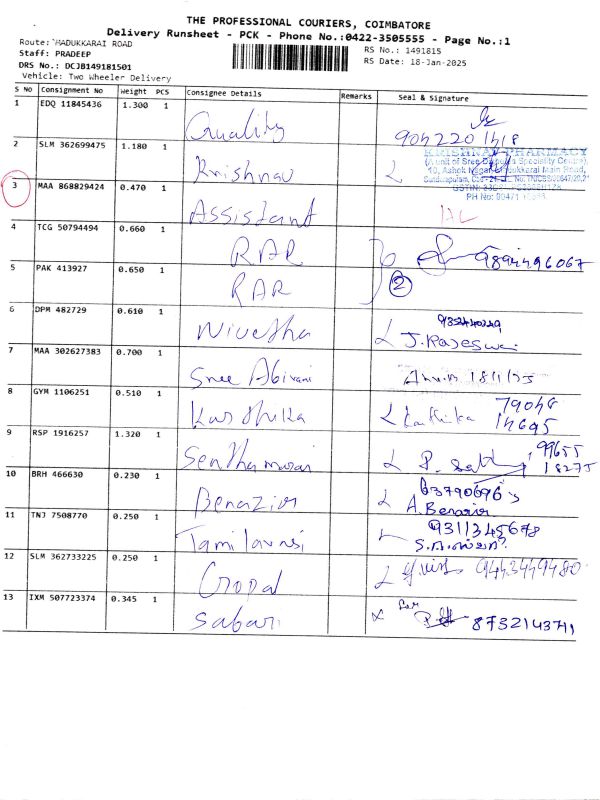 THE PROFESSIONAL COURIERS, COIMBATORE
Delivery Runsheet - PCK - Phone No.:0422-3505555 - Page No.:1
Route: MADUKKARAI ROAD
RS No.: 1491815
Staff: PRADEEP
RS Date: 18-Jan-2025
DRS No.: DCJB149181501
Vehicle: Two Wheeler Delivery
S No Consignment No Weight PCS Consignee Details Remarks Seal & Signature
1 EDQ 11845436 1.300 1 Quality
2 SLM 362699475 1.180 1 Krishnav
KRISHNAV PHARMACY
(A unit of Sree Speciality Centre)
10, Ashok Nagar, Madukkarai Main Road,
PH No: 80471
3 MAA 868829424 0.470 1 Assistant
4 TCG 50794494 0.660 1 RAR 9894496067
5 PAK 413927 0.650 1 RAR 2
6 DPM 482729 0.610 1 Nivetha J. Rajeswari
7 MAA 302627383 0.700 1 Sree Abirami 18/1/25
8 GYM 1106251 0.510 1 Karthika Karthika 79048 14695
9 RSP 1916257 1.320 1 Senthamarai 99655 18275
10 BRH 466630 0.230 1 Benazir A. Benazir
11 TNJ 7508770 0.250 1 Tamilarasi 9311345678
12 SLM 362733225 0.250 1 Gopal 9443449480
13 IXM 507723374 0.345 1 Sabari 8732143741